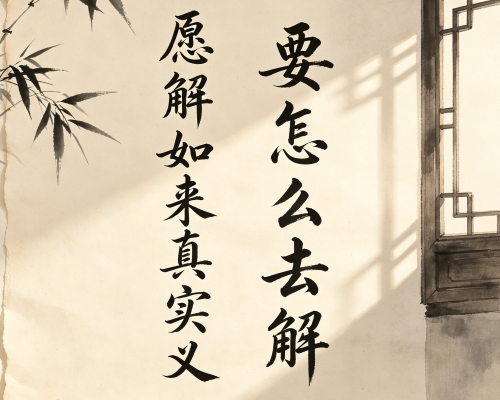 要怎么去解
愿解如来真实义